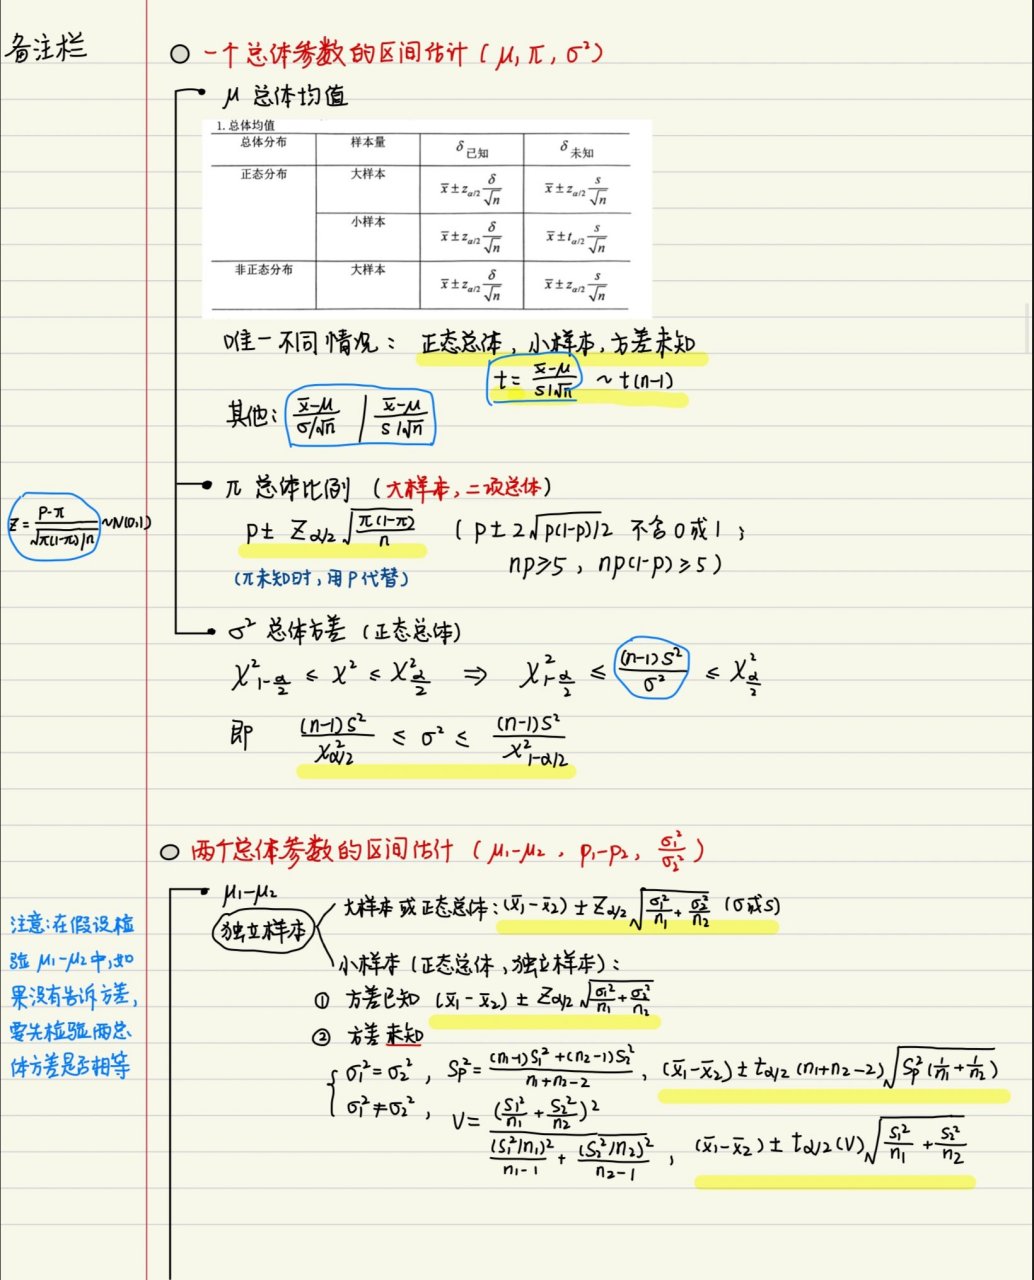 备注栏
一个总体参数的区间估计（μ, π, σ²）
μ 总体均值
1. 总体均值
总体分布 样本量 δ已知 δ未知
正态分布 大样本 x̄±z_{α/2} δ/√n x̄±z_{α/2} s/√n
小样本 x̄±z_{α/2} δ/√n x̄±t_{α/2} s/√n
非正态分布 大样本 x̄±z_{α/2} δ/√n x̄±z_{α/2} s/√n
唯一不同情况：正态总体，小样本，方差未知
t = (x̄-μ)/(s/√n) ~ t(n-1)
其他：(x̄-μ)/(σ/√n) | (x̄-μ)/(s/√n)
π 总体比例（大样本，二项总体）
z = (P-π)/√(π(1-π)/n) ~N(0,1)
P± Z_{α/2} √(π(1-π)/n) （P±2√(p(1-p)/2) 不含0或1；
np≥5，np(1-p)≥5）
（π未知时，用P代替）
σ² 总体方差（正态总体）
χ²_{1-α/2} ≤ χ² ≤ χ²_{α/2} ⇒ χ²_{1-α/2} ≤ (n-1)S²/σ² ≤ χ²_{α/2}
即 (n-1)S²/χ²_{α/2} ≤ σ² ≤ (n-1)S²/χ²_{1-α/2}
两个总体参数的区间估计（μ₁-μ₂，p₁-p₂，σ₁²/σ₂²）
μ₁-μ₂
独立样本
大样本或正态总体：(x̄₁-x̄₂) ± Z_{α/2} √(σ₁²/n₁ + σ₂²/n₂) (σ或s)
小样本（正态总体，独立样本）：
① 方差已知 (x̄₁-x̄₂) ± Z_{α/2} √(σ₁²/n₁ + σ₂²/n₂)
② 方差未知
σ₁²=σ₂²，Sp² = ((n₁-1)S₁²+(n₂-1)S₂²)/(n₁+n₂-2)，(x̄₁-x̄₂) ± t_{α/2}(n₁+n₂-2) √(Sp²(1/n₁+1/n₂))
σ₁²≠σ₂²，V = (S₁²/n₁ + S₂²/n₂)² / ((S₁²/n₁)²/(n₁-1) + (S₂²/n₂)²/(n₂-1))，(x̄₁-x̄₂) ± t_{α/2}(V) √(S₁²/n₁ + S₂²/n₂)
注意:在假设检
验 μ₁-μ₂中,如
果没有告诉方差,
要先检验两总
体方差是否相等